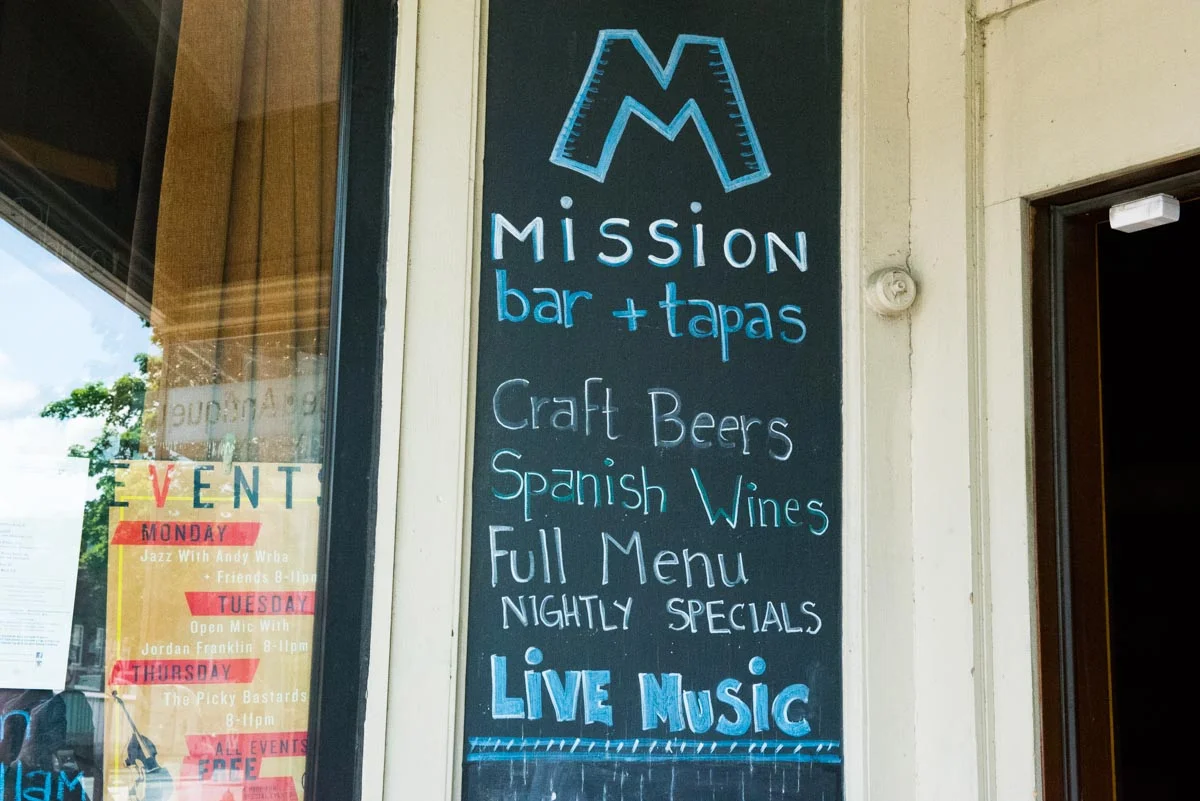 M
MiSSiON
bar + tapas
Craft Beers
Spanish Wines
Full Menu
NIGHTLY SPECIALS
LiVE MUSiC
EVENTS
MONDAY
Jazz With Andy Wrba
+ Friends 8-11pm
TUESDAY
Open Mic With
Jordan Franklin 8-11pm
THURSDAY
The Picky Bastards
8-11pm
ALL EVENTS
FREE